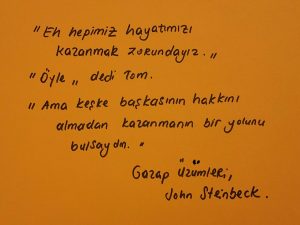 " Eh hepimiz hayatımızı
kazanmak zorundayız. „
" Öyle „ dedi Tom.
" Ama keşke başkasının hakkını
almadan kazanmanın bir yolunu
bulsaydın. "
Gazap Üzümleri,
John Steinbeck.